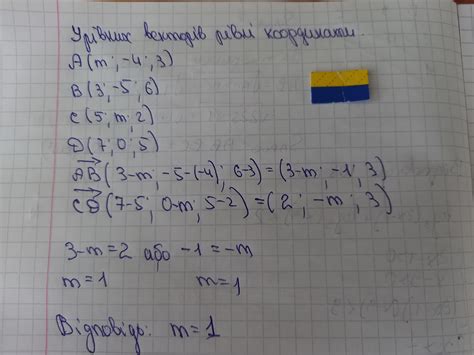 У рівних векторів рівні координати.
A(m; -4; 3)
B(3; -5; 6)
C(5; m; 2)
D(7; 0; 5)
AB(3-m; -5-(-4); 6-3)=(3-m; -1; 3)
CD(7-5; 0-m; 5-2)=(2; -m; 3)
3-m=2 або -1=-m
m=1 m=1
Відповідь: m=1